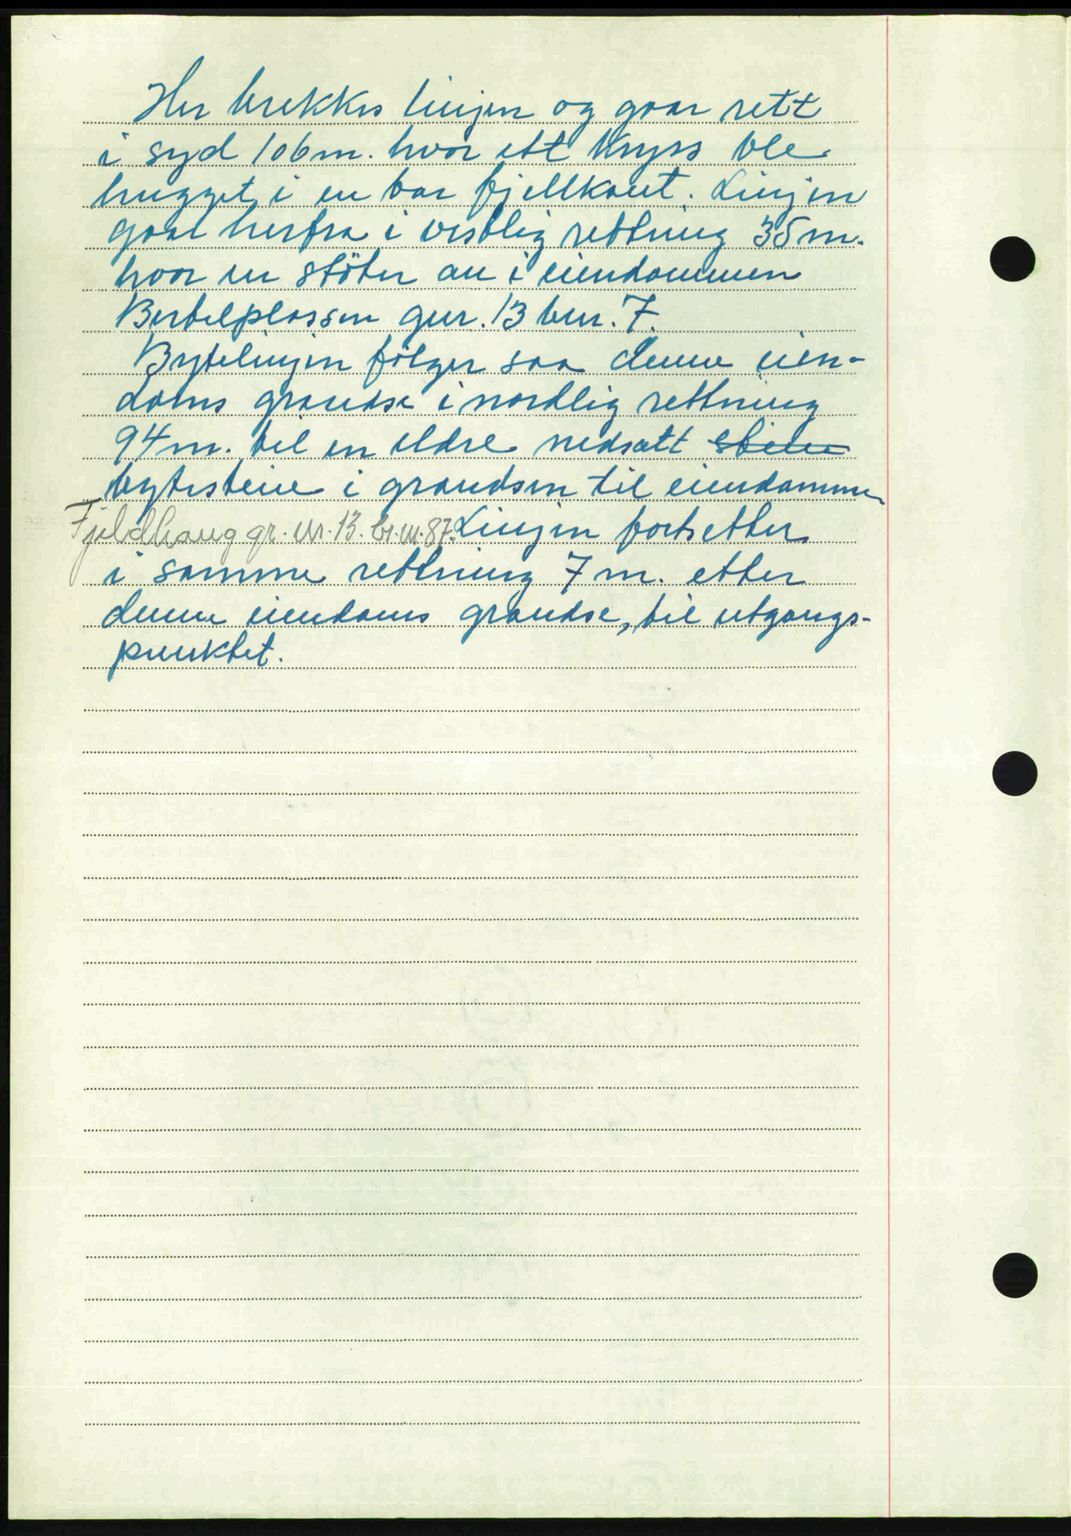 Her brekkes linjen og gaar rett
i syd 106 m. hvor ett kryss ble
hugget i en bar fjellkant. Linjen
gaar herfra i vestlig rettning 35 m.
hvor en støter an i eiendommen
Bertelplassen gnr. 13 bnr. 7.
Bytelinjen følger saa denne eien-
doms grandse i nordlig rettning
94 m. til en eldre nedsatt steine
bytesteine i grandsen til eiendommen
Fjeldhaug gr. nr. 13. br. nr. 87. Linjen fortsetter
i samme rettning 7 m. etter
denne eiendoms grandse, til utgangs-
punktet.